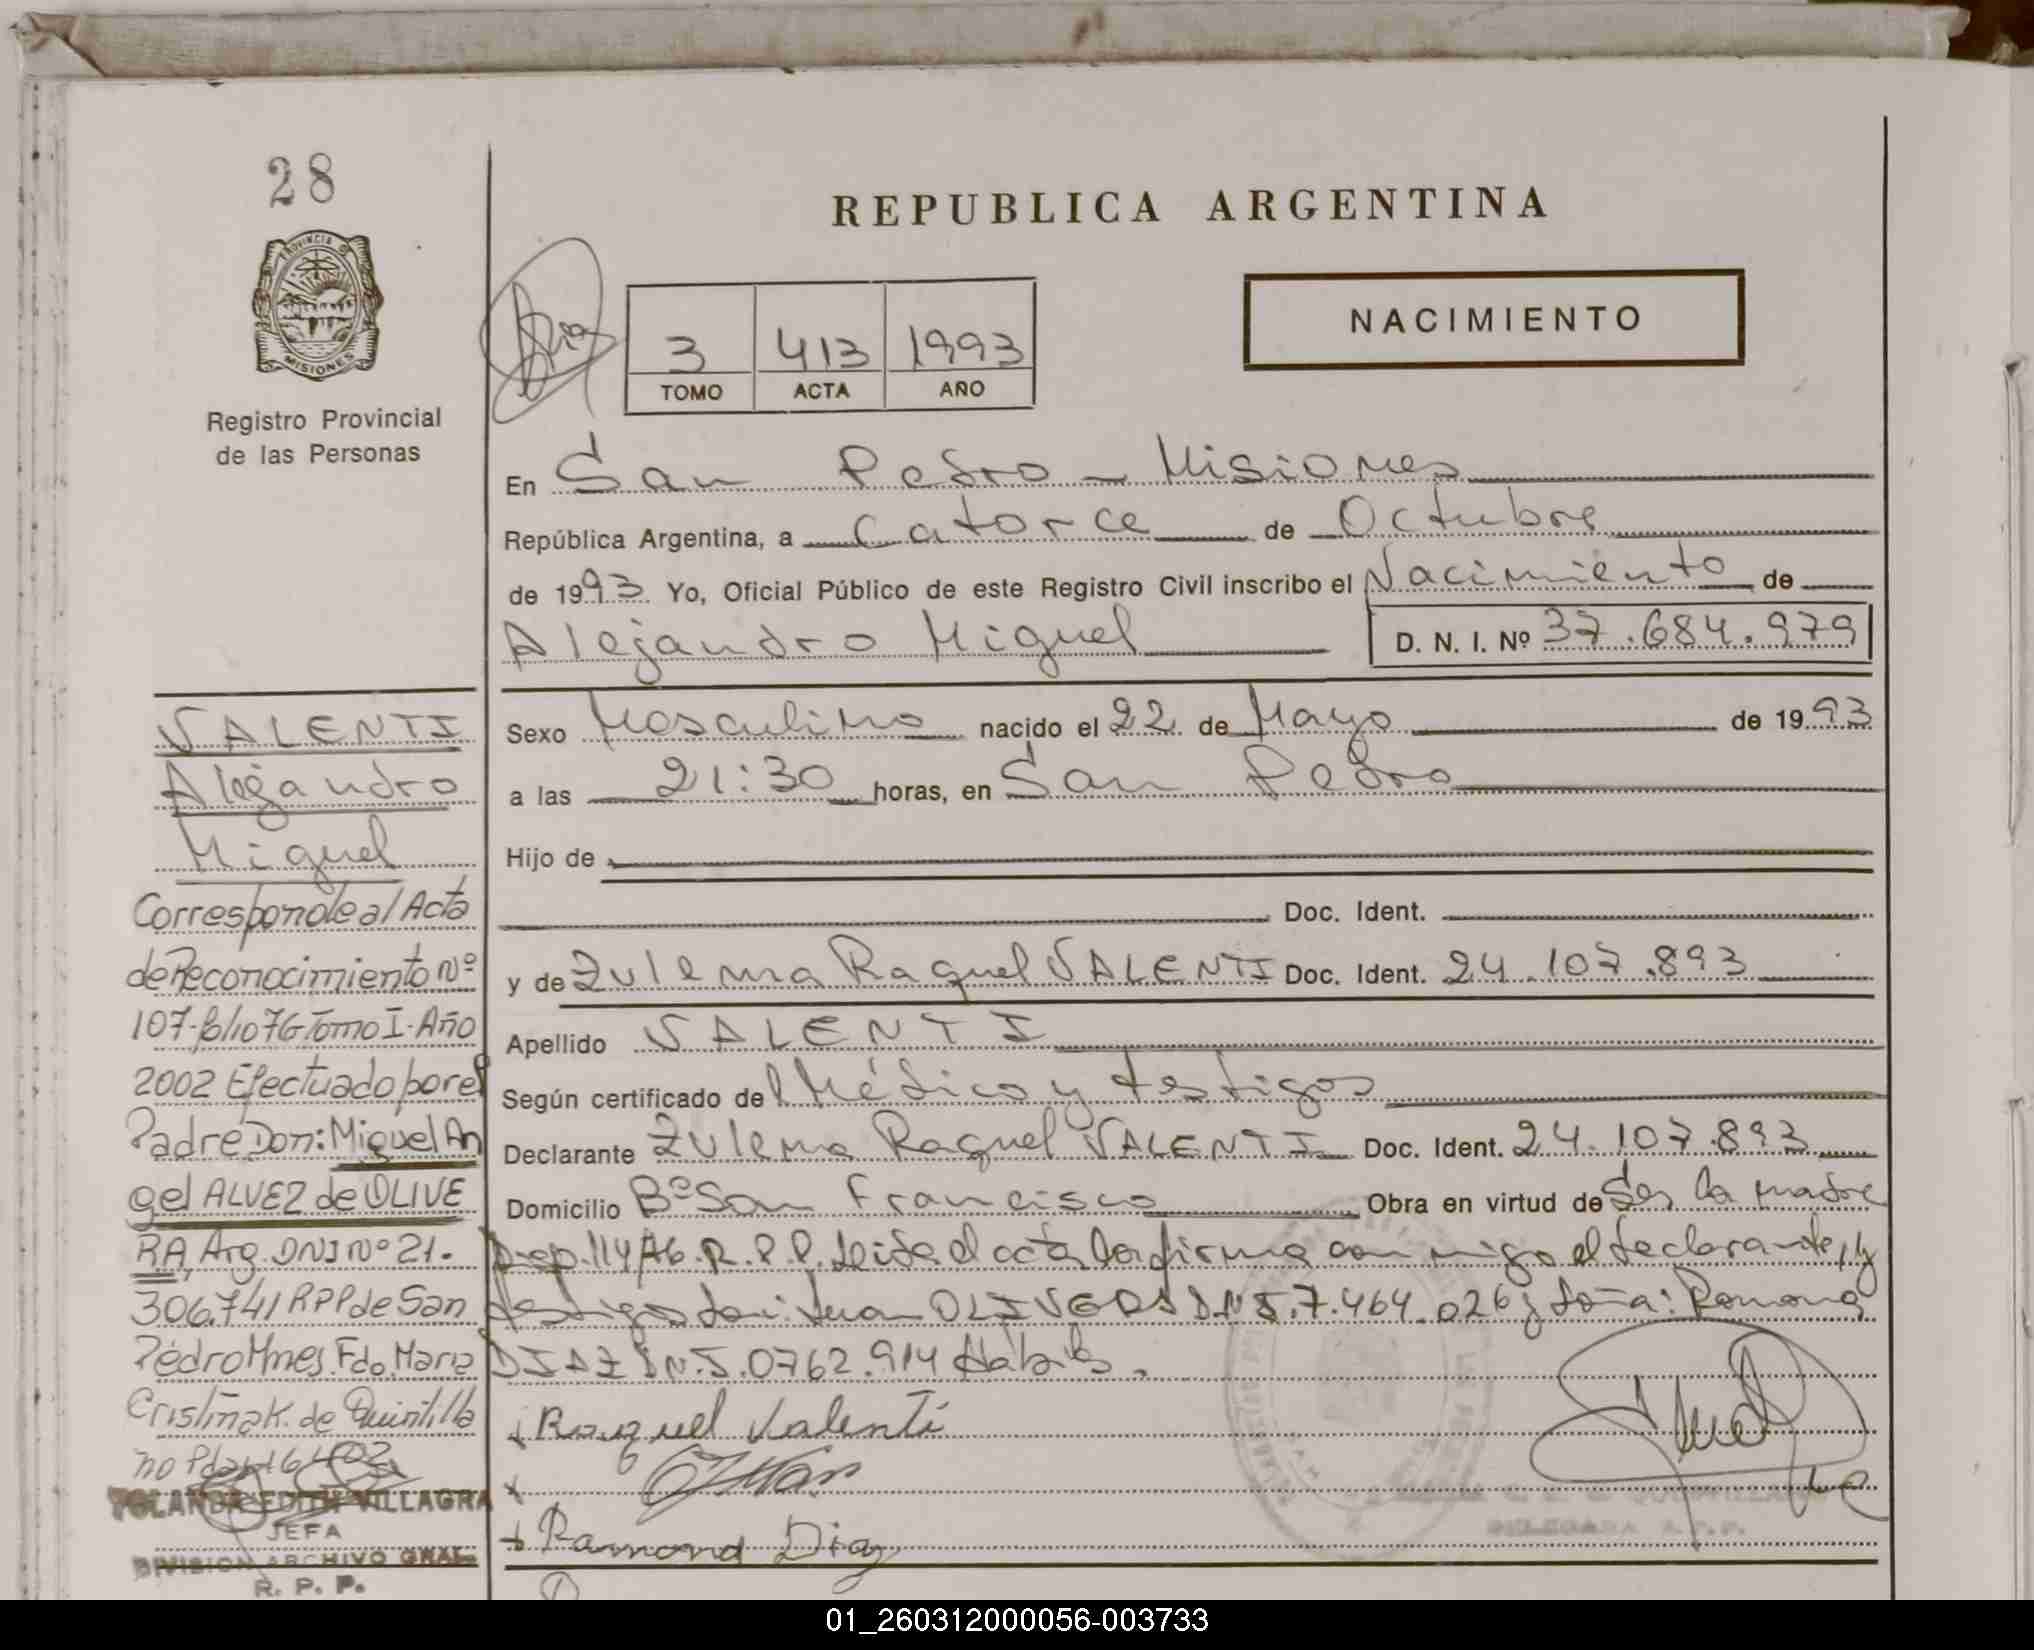 28
PROVINCIA DE
MISIONES
Registro Provincial
de las Personas
REPUBLICA ARGENTINA
3 413 1993
TOMO ACTA AÑO
NACIMIENTO
En San Pedro - Misiones
República Argentina, a Catorce de Octubre
de 1993 Yo, Oficial Público de este Registro Civil inscribo el Nacimiento de
Alejandro Miguel D. N. I. Nº 37.684.979
Sexo Masculino nacido el 22 de Mayo de 1993
a las 21:30 horas, en San Pedro
Hijo de
Doc. Ident.
y de Zulema Raquel VALENTI Doc. Ident. 24.107.893
Apellido VALENTI
Según certificado de Médico y testigos
Declarante Zulema Raquel VALENTI Doc. Ident. 24.107.893
Domicilio Bº San Francisco Obra en virtud de Ser la madre
Disp. 114/76. R.P.P. Leída el acta la firma con migo el declarante, y
testigos don: Juan OLIVERA D.N.I. 7.464.026 y doña: Ramona
DIAZ D.N.I. 0762.914 Habiles.
Raquel Valenti
x
Ramona Diaz
VALENTI
Alejandro
Miguel
Corresponde al Acta
de Reconocimiento Nº
107-fº/107G Tomo I-Año
2002 Efectuado por el
Padre Don: Miguel An
gel ALVEZ de OLIVE
RA, Arg. DNI Nº 21.
306.741 RPP de San
Pedro Mnes. Fdo. Maria
Cristina K. de Quintilla
no Pdas
YOLANDA EDITH VILLAGRA
JEFA
DIVISION ARCHIVO GRAL.
R. P. P.
DELEGADA R.P.P.
01_260312000056-003733